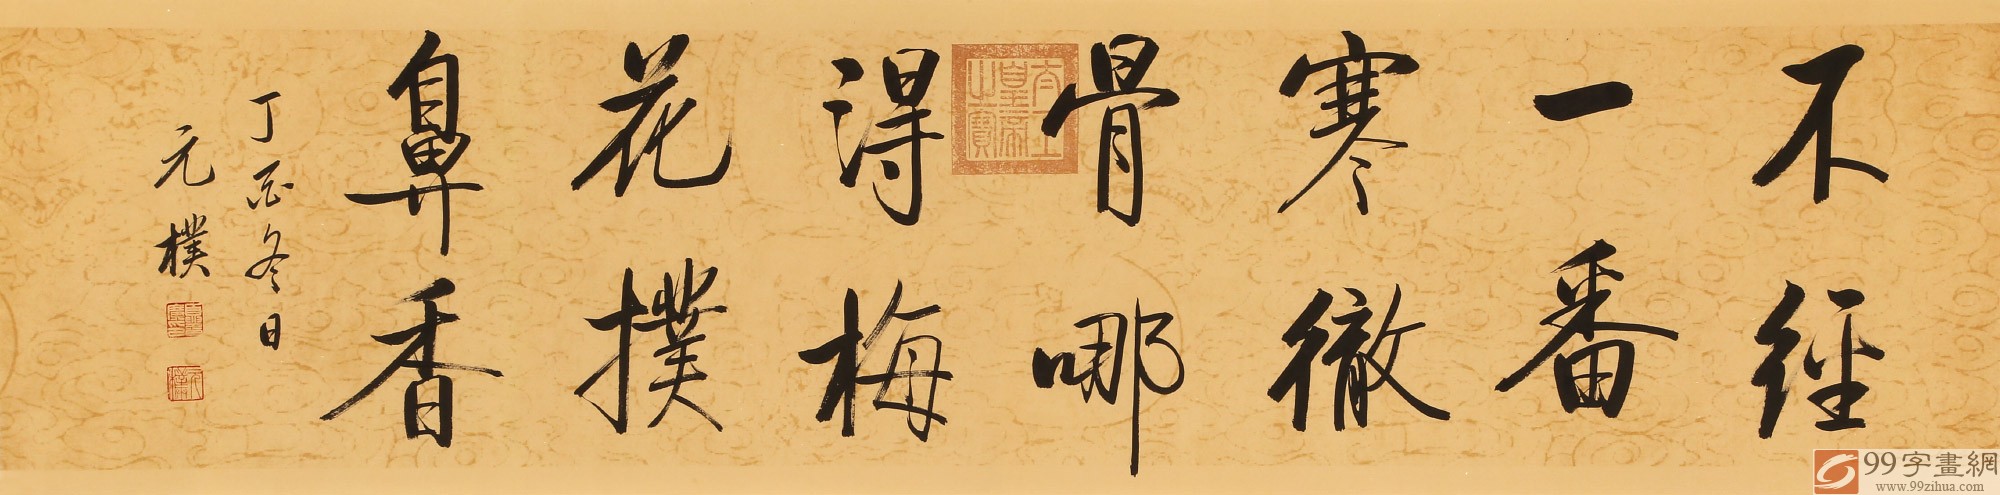 不經
一番
寒徹
骨哪
得梅
花撲
鼻香
丁酉冬日
元樸
太上
皇帝
之寶
99字畫網
www.99zihua.com